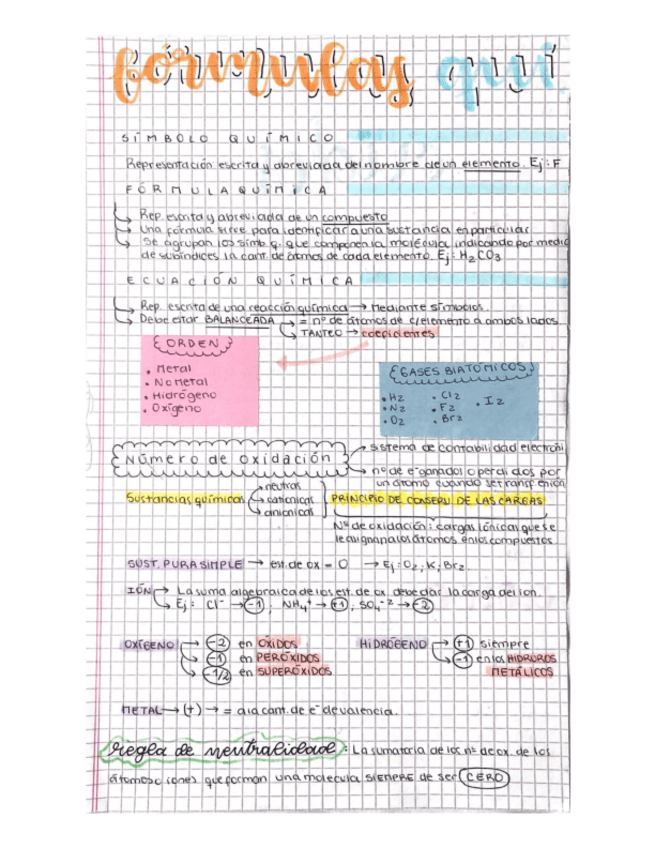 fórmulas quí
SÍMBOLO QUÍMICO
Representación escrita y abreviada del nombre de un elemento. Ej: F
FÓRMULA QUÍMICA
Rep. escrita y abreviada de un compuesto
Una fórmula sirve para identificar a una sustancia en particular
Se agrupan los símb. q. que componen la molécula, indicando por medio
de subíndices la cant. de átomos de cada elemento. Ej: H2CO3
ECUACIÓN QUÍMICA
Rep. escrita de una reacción química → mediante símbolos.
Debe estar BALANCEADA → = nº de átomos de c/elemento a ambos lados.
TANTEO → coeficientes
ORDEN
• Metal
• No Metal
• Hidrógeno
• Oxígeno
GASES BIATÓMICOS
• H2 • Cl2 • I2
• N2 • F2
• O2 • Br2
Número de oxidación
sistema de contabilidad electróni
nº de e⁻ ganados o perdidos por
un átomo cuando se transfieren
Sustancias químicas
neutras
catiónicas
aniónicas
PRINCIPIO DE CONSERV. DE LAS CARGAS
Nº de oxidación: cargas iónicas que se
le asignan a los átomos en los compuestos
SUST. PURA SIMPLE → est. de ox = 0 → Ej: O2; K; Br2.
IÓN → La suma algebraica de los est. de ox. debe dar la carga del ion.
Ej: Cl⁻ → -1; NH4⁺ → +1; SO4⁻² → -2
OXÍGENO → -2 en ÓXIDOS
-1 en PERÓXIDOS
-1/2 en SUPERÓXIDOS
HIDRÓGENO → +1 siempre
-1 en los HIDRUROS
METÁLICOS
METAL → (+) → = a la cant. de e⁻ de valencia.
Regla de neutralidad: La sumatoria de los nº de ox. de los
átomos (iones) que forman una molécula SIEMPRE de ser CERO